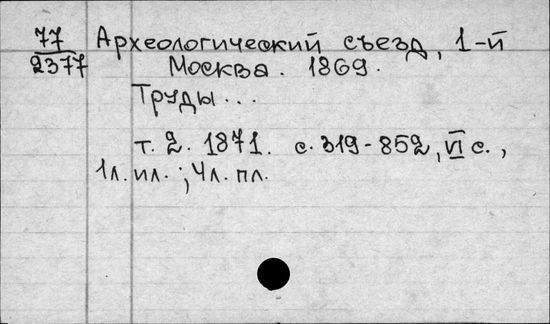 77 Археологический съезд, 1-й
2377 Москва. 1869.
Труды...
т. 2. 1871. с. 319-852, VI с.,
1л. ил.; 4л. пл.